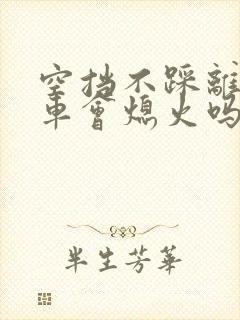 空挡不踩離
車會熄火吗
半生芳華